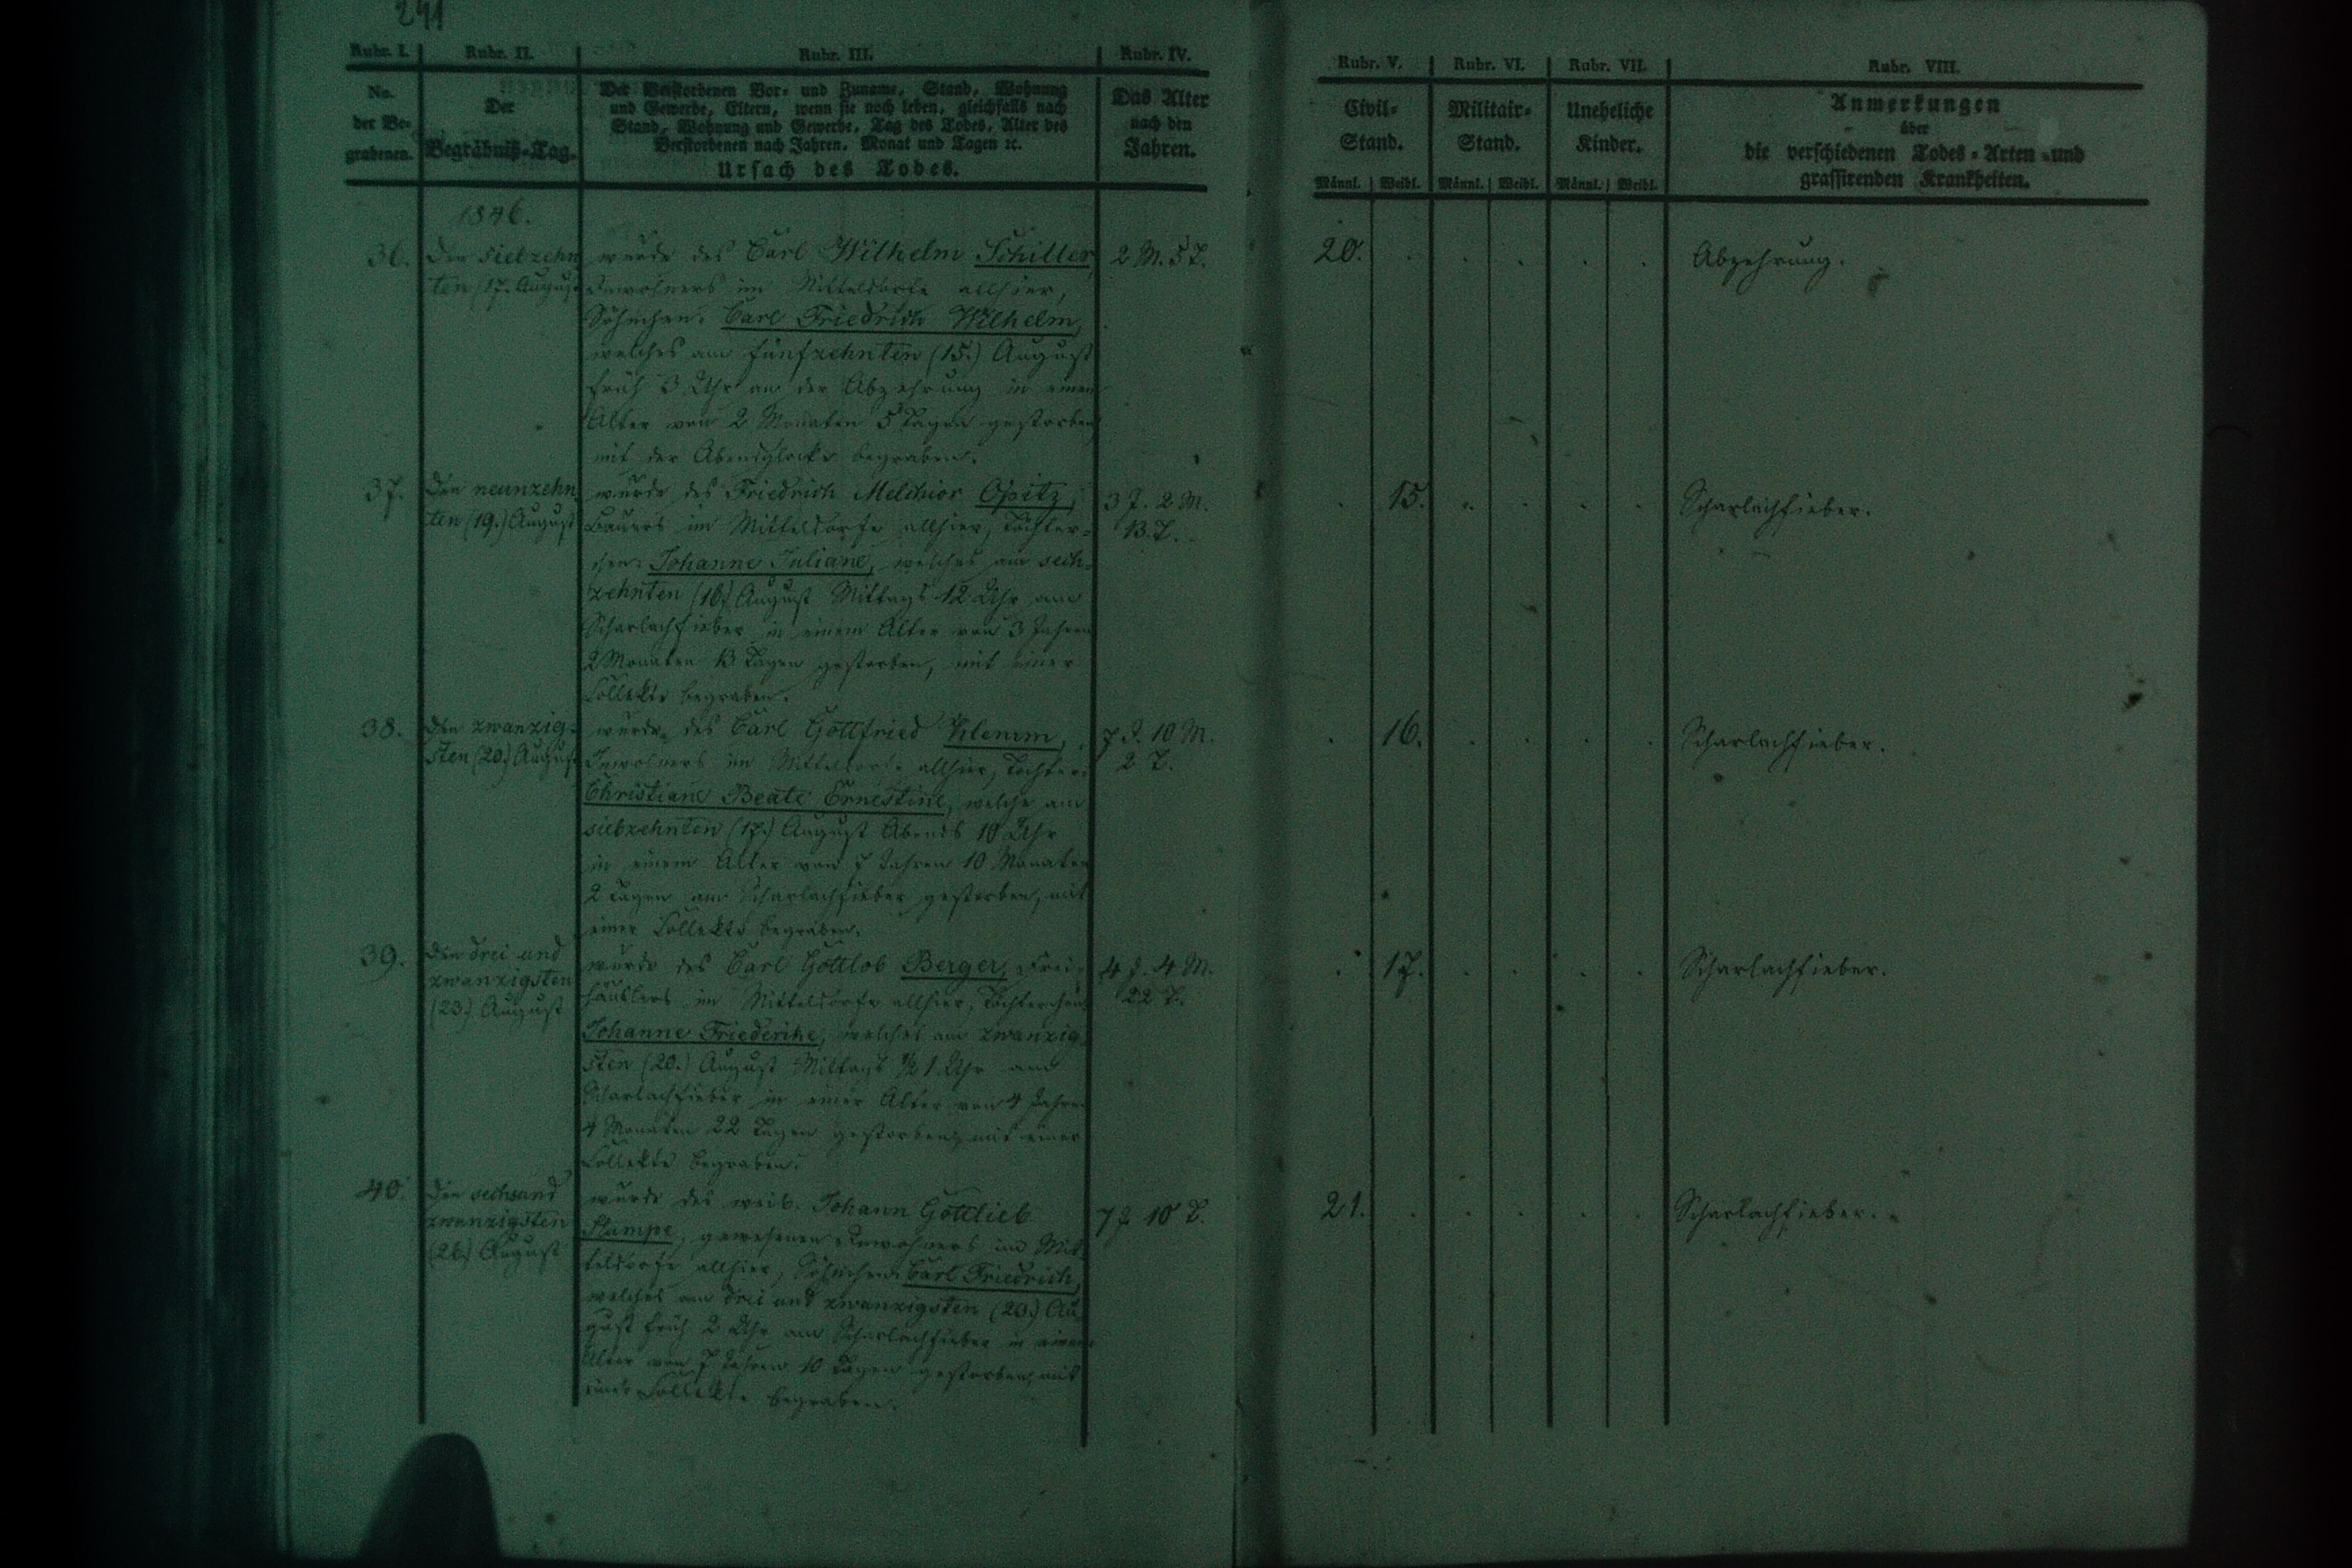 241
Rubr. I. Rubr. II. Rubr. III. Rubr. IV.
No. der Be- grabenen.
Der Begräbniß-Tag.
Der Verstorbenen Vor- und Zuname, Stand, Wohnung
und Gewerbe, Eltern, wenn sie noch leben, gleichfalls nach
Stand, Wohnung und Gewerbe, Tag des Todes, Alter des
Verstorbenen nach Jahren, Monat und Tagen ꝛc.
Ursach des Todes.
Das Alter
nach den
Jahren.
1846.
36.
Den siebzehn
ten (17.) August
wurde des Carl Wilhelm Schiller,
Inwohners im Mitteldorfe allhier,
Söhnchen: Carl Friedrich Wilhelm,
welches am fünfzehnten (15.) August
früh 3 Uhr an der Abzehrung in einem
Alter von 2 Monaten 5 Tagen gestorben,
mit der Abendglocke begraben.
2 M. 5 T.
37.
Den neunzehn
ten (19.) August
wurde des Friedrich Melchior Opitz,
Bauers im Mitteldorfe allhier, Töchter-
chen: Johanne Juliane, welches am sech-
zehnten (16.) August Mittags 12 Uhr am
Scharlachfieber in einem Alter von 3 Jahren
2 Monaten 13 Tagen gestorben, mit einer
Collekte begraben.
3 J. 2 M.
13. T.
38.
Den zwanzig-
sten (20.) August
wurde des Carl Gottfried Klemm,
Inwohners im Mitteldorfe allhier, Tochter:
Christiane Beate Ernestine, welche am
siebzehnten (17.) August Abends 10 Uhr
in einem Alter von 7 Jahren 10 Monaten
2 Tagen am Scharlachfieber gestorben, mit
einer Collekte begraben.
7 J. 10 M.
2 T.
39.
Den drei und
zwanzigsten
(23.) August
wurde des Carl Gottlob Berger, Frei-
häuslers im Mitteldorfe allhier, Töchterchen:
Johanne Friederike, welches am zwanzig-
sten (20.) August Mittags ½ 1 Uhr am
Scharlachfieber in einer Alter von 4 Jahren
4 Monaten 22 Tagen gestorben, mit einer
Collekte begraben.
4 J. 4 M.
22 T.
40.
Den sechsund
zwanzigsten
(26.) August
wurde des weil. Johann Gottlieb
Stampe, gewesenen Inwohners im Mit-
teldorfe allhier, Söhnchen: Carl Friedrich,
welches am drei und zwanzigsten (23.) Au-
gust früh 2 Uhr am Scharlachfieber in einem
Alter von 7 Jahren 10 Tagen gestorben, mit
einer Collekte begraben.
7 J. 10 T.
Rubr. V. Rubr. VI. Rubr. VII. Rubr. VIII.
Civil-
Stand.
Militair-
Stand.
Uneheliche
Kinder.
Anmerkungen
über
die verschiedenen Todes-Arten und
grassirenden Krankheiten.
Männl. Weibl. Männl. Weibl. Männl. Weibl.
20. Abzehrung.
15. Scharlachfieber.
16. Scharlachfieber.
17. Scharlachfieber.
21. Scharlachfieber.